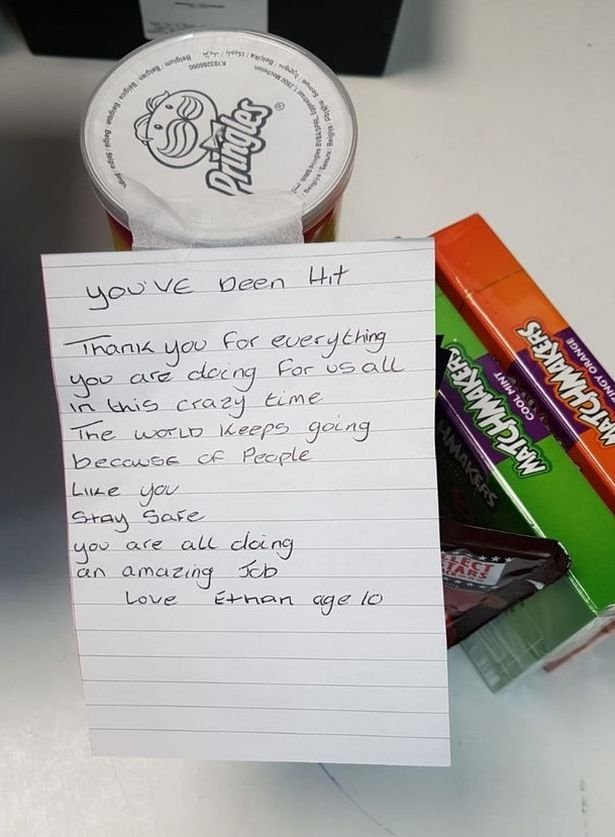 Pringles
you've been Hit
Thank you for everything
you are doing for us all
in this crazy time
The world keeps going
because of People
Like you
Stay Safe
you are all doing
an amazing Job
Love Ethan age 10
MATCHMAKERS
COOL MINT
MATCHMAKERS